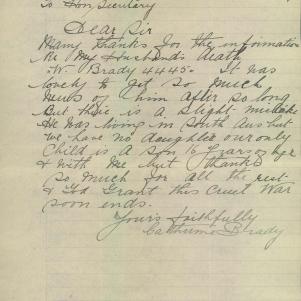 To Hon, Secretary
Dear Sir
Many thanks for the information
Re My Husbands death
W. Brady 4445. It was
lovely to get so much
news of him after so long
But there is a slight mistake
He was living in South Aus but
we have no daughter our only
Child is a son 6 years of age
& with Me but thanks
so much for all the rest
& God Grant this Cruel War
soon ends.
Yours faithfully
Catherine Brady